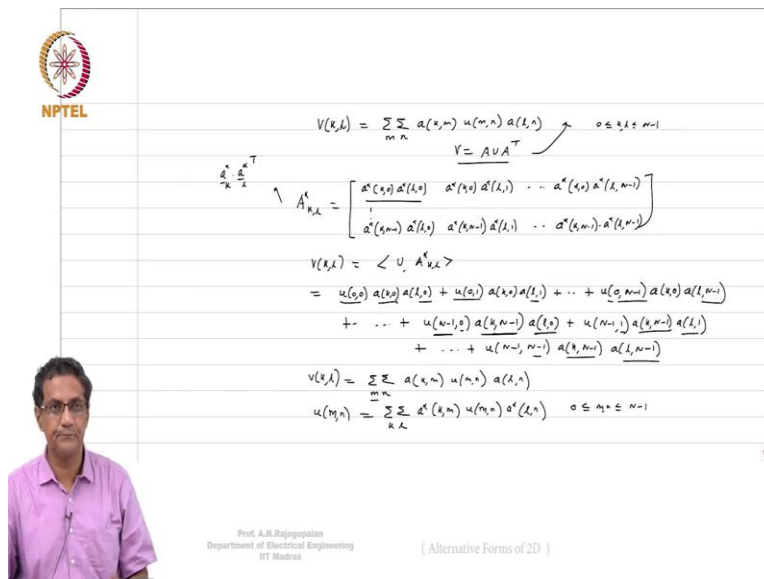 NPTEL
v(k,l) = ΣΣ a(k,m) u(m,n) a(l,n)    0 ≤ k,l ≤ N-1
m n
V = A U A^T
a*_k · a*_l^T
A*_{k,l} = [ a*(k,0) a*(l,0)   a*(k,0) a*(l,1)  ..  a*(k,0) a*(l,N-1)
a*(k,N-1) a*(l,0)   a*(k,N-1) a*(l,1)  ..  a*(k,N-1)·a*(l,N-1) ]
v(k,l) = < U, A*_{k,l} >
= u(0,0) a(k,0) a(l,0) + u(0,1) a(k,0) a(l,1) + .. + u(0,N-1) a(k,0) a(l,N-1)
+ ... + u(N-1,0) a(k,N-1) a(l,0) + u(N-1,1) a(k,N-1) a(l,1)
+ ... + u(N-1,N-1) a(k,N-1) a(l,N-1)
v(k,l) = ΣΣ a(k,m) u(m,n) a(l,n)
m n
u(m,n) = ΣΣ a*(k,m) u(m,n) a*(l,n)    0 ≤ m,n ≤ N-1
k l
Prof. A.N.Rajagopalan
Department of Electrical Engineering
IIT Madras
( Alternative Forms of 2D )